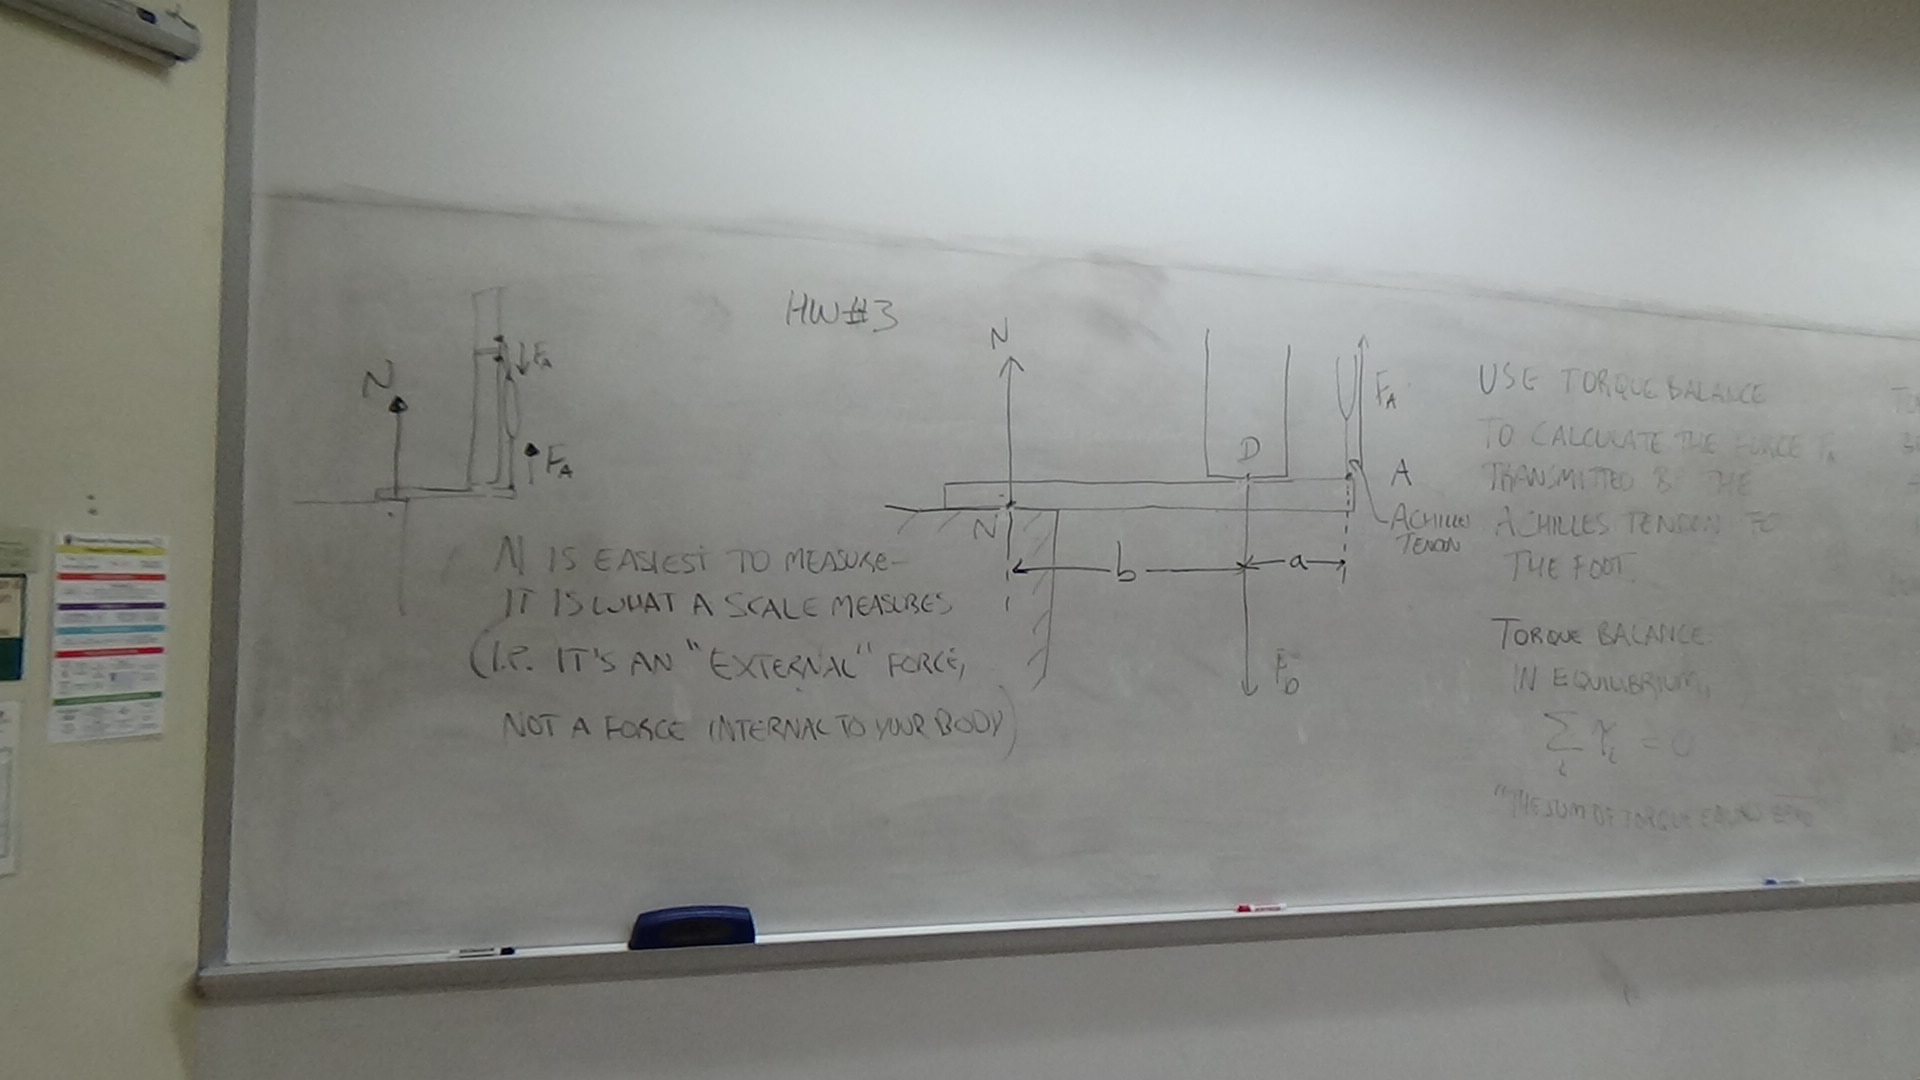 HW#3
N
FA
FA
N IS EASIEST TO MEASURE-
IT IS WHAT A SCALE MEASURES
(I.P. IT'S AN "EXTERNAL" FORCE,
NOT A FORCE INTERNAL TO YOUR BODY)
N
D
FA
A
N
ACHILLES
TENON
b
a
FD
USE TORQUE BALANCE
TO CALCULATE THE FORCE FA
TRANSMITTED BY THE
ACHILLES TENDON TO
THE FOOT.
TORQUE BALANCE
IN EQUILIBRIUM,
∑ τi = 0
i
"THE SUM OF TORQUE EQUALS ZERO